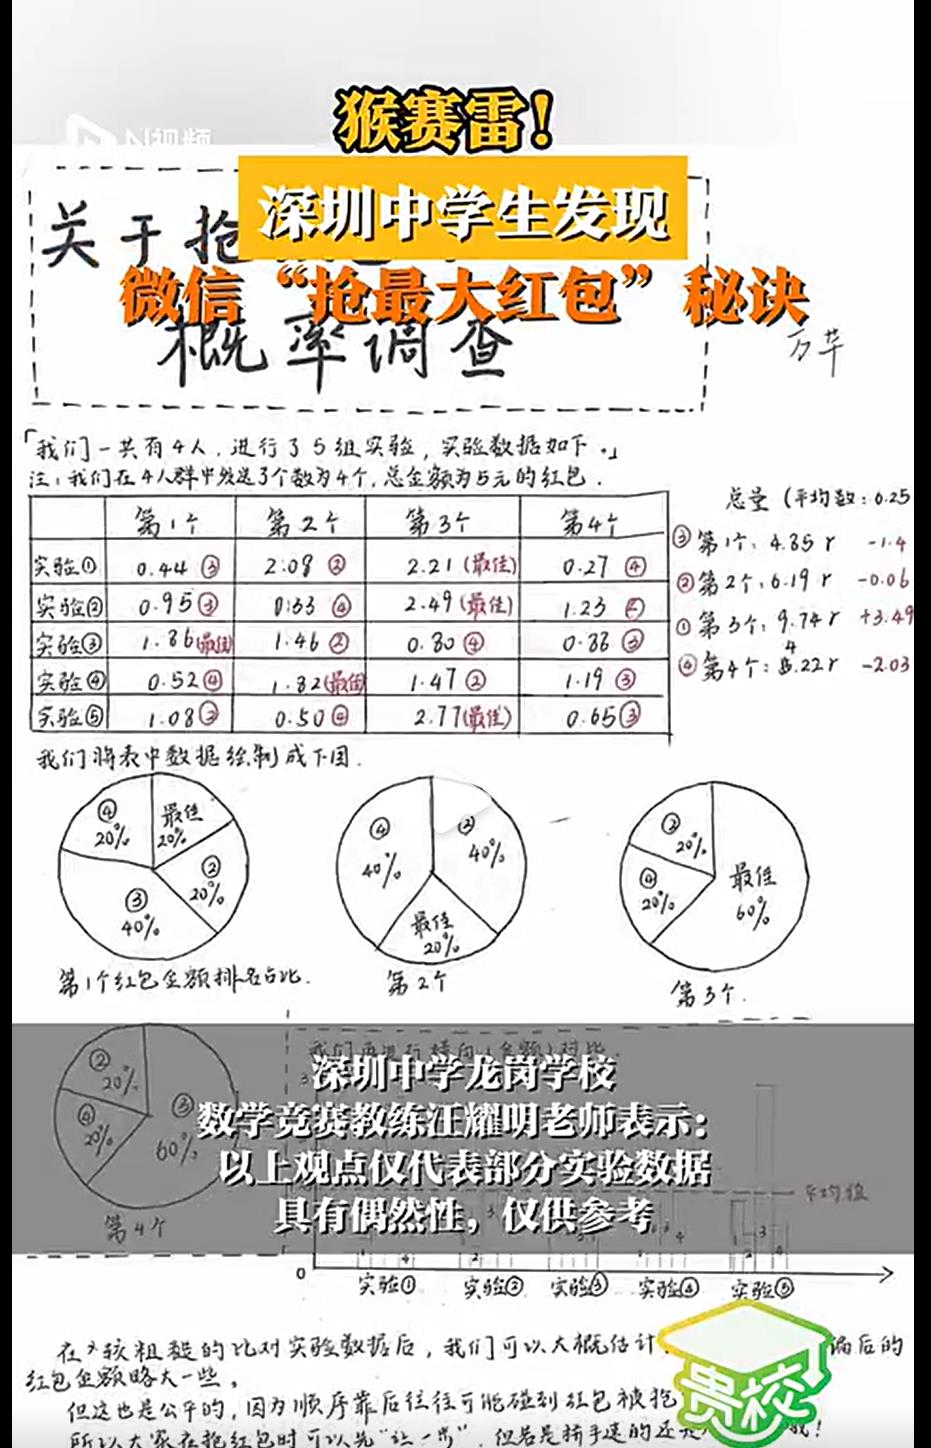 N视频
猴赛雷！
深圳中学生发现
微信“抢最大红包”秘诀
关于抢
概率调查
万芊
「我们一共有4人,进行了5组实验,实验数据如下。」
注:我们在4人群中发送了个数为4个,总金额为5元的红包.
第1个 第2个 第3个 第4个
实验① 0.44③ 2.08② 2.21(最佳) 0.27④
实验② 0.95③ 0.33④ 2.49(最佳) 1.23②
实验③ 1.86(最佳) 1.46② 0.80④ 0.88③
实验④ 0.52④ 1.82(最佳) 1.47② 1.19③
实验⑤ 1.08② 0.50④ 2.77(最佳) 0.65③
总量(平均数:0.25
③第1个:4.85 r -1.4
②第2个:6.19 r -0.06
①第3个:9.74 r +3.49
④第4个: 4.22 r -2.03
我们将表中数据绘制成下图.
④ 20% 最佳 20% ② 20% ③ 40%
第1个红包金额排名占比.
④ 40% ② 40% 最佳 20%
第2个
② 20% ④ 20% 最佳 60%
第3个.
② 20% ④ 20% ③ 60%
第4个
深圳中学龙岗学校
数学竞赛教练汪耀明老师表示：
以上观点仅代表部分实验数据
具有偶然性，仅供参考
平均值
0
实验① 实验② 实验③ 实验④ 实验⑤
在较粗糙的比对实验数据后,我们可以大概估计 偏后的
红包金额略大一些,
但这也是公平的,因为顺序靠后往往可能碰到红包被抢
所以大家在抢红包时可以先“让一步”,但若是拼手速的还是 我!
贵校